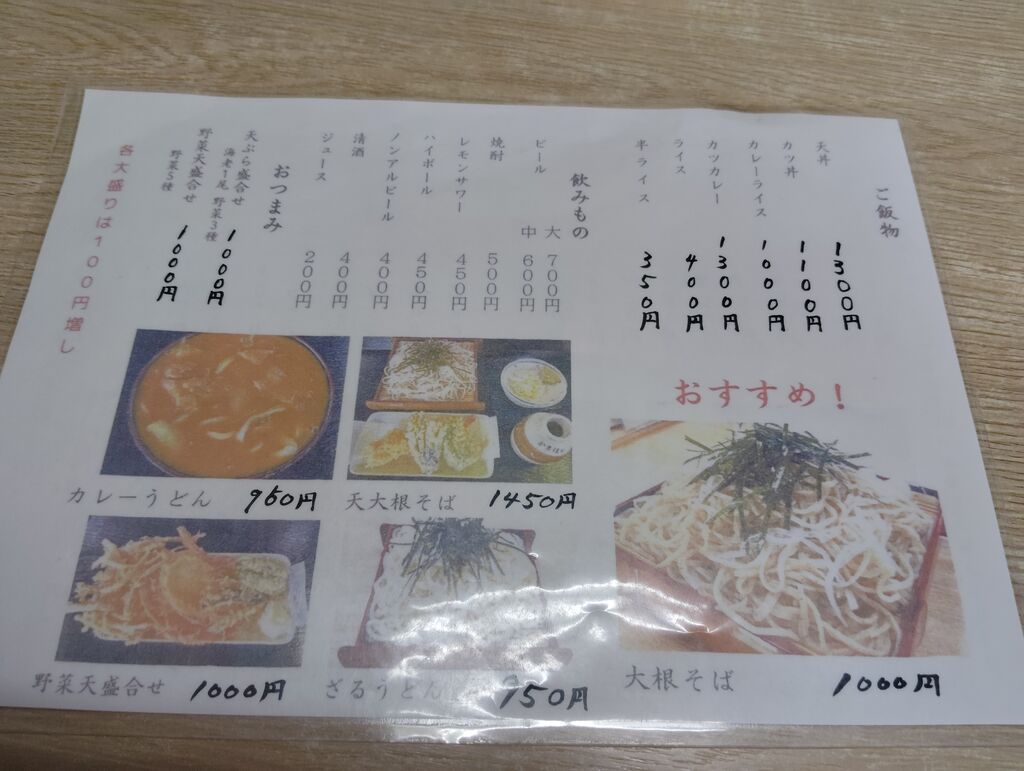 ご飯物
天丼 1300円
カツ丼 1100円
カレーライス 1000円
カツカレー 1300円
ライス 400円
半ライス 350円
飲みもの
ビール 大 700円
中 600円
焼酎 500円
レモンサワー 450円
ハイボール 450円
ノンアルビール 400円
清酒 400円
ジュース 200円
おつまみ
天ぷら盛合せ
海老1尾 野菜3種 1000円
野菜天盛合せ
野菜5種 1000円
各大盛りは100円増し
おすすめ!
カレーうどん
天大根そば 1450円
野菜天盛合せ 1000円
ざるうどん
大根そば 1000円